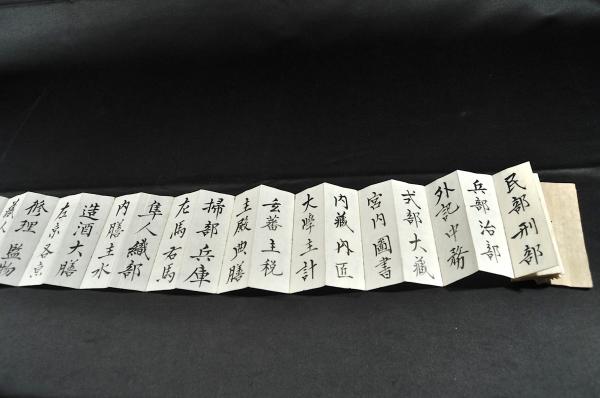 民部刑部
兵部治部
外記中務
式部大蔵
宮内圖書
内蔵内匠
大炊主計
玄蕃主税
主殿典膳
掃部兵庫
左馬右馬
隼人織部
内膳主水
造酒大膳
左京右京
修理監物
蔵人